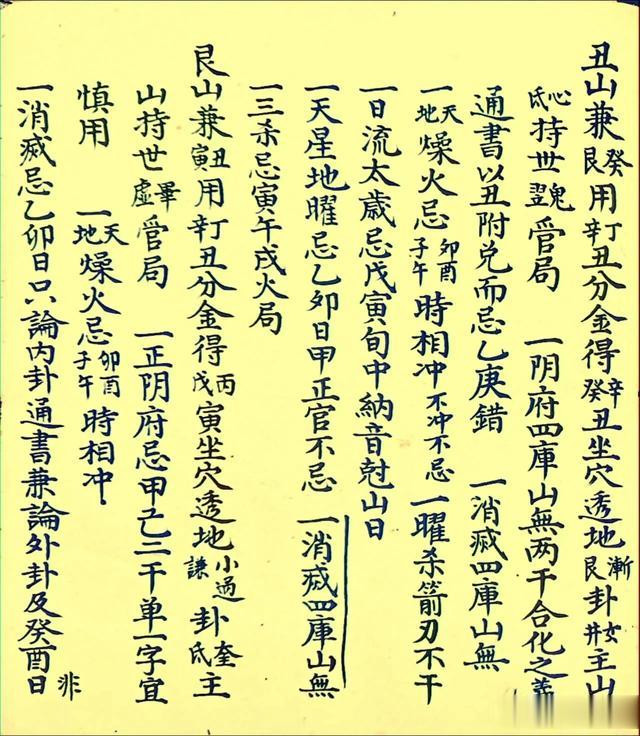 丑山兼癸艮用丁辛丑分金得辛癸丑坐穴透地漸艮卦女井主山
心氐持世鬼翌管局 一阴府四庫山無两干合化之義
通書以丑附兑而忌乙庚錯 一消㓕四庫山無
一天地燥火忌卯酉子午時相冲不冲不忌 一曜杀箭刃不干
一日流太歳忌戊寅旬中納音尅山日
一天星地曜忌乙卯日甲正官不忌 一消㓕四庫山無
一三杀忌寅午戌火局
艮山兼丑寅用辛丁丑分金得丙戊寅坐穴透地小過謙卦奎氐主
山持世畢虚管局 一正阴府忌甲己二干单一字宜
慎用 一天地燥火忌卯酉子午時相冲
一消㓕忌乙卯日只論内卦通書兼論外卦及癸酉日非